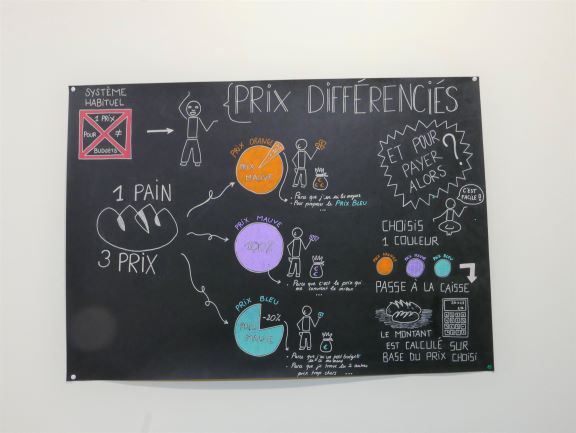 SYSTÈME
HABITUEL
1 PRIX
POUR ≠
BUDGETS
PRIX DIFFÉRENCIÉS
1 PAIN
3 PRIX
PRIX ORANGE
PRIX
MAUVE
- Parce que j'en ai les moyens
- Pour proposer le PRIX BLEU
...
PRIX MAUVE
100%
- Parce que c'est le prix qui
me convient le mieux
...
PRIX BLEU
-20%
PRIX
MAUVE
- Parce que j'ai un petit budget
- Parce que je trouve les 2 autres
prix trop chers ...
ET POUR
PAYER
ALORS ?
C'EST
FACILE !
CHOISIS
1 COULEUR
PRIX ORANGE
PRIX MAUVE
PRIX BLEU
PASSE À LA CAISSE
LE MONTANT
EST CALCULÉ SUR
BASE DU PRIX CHOISI